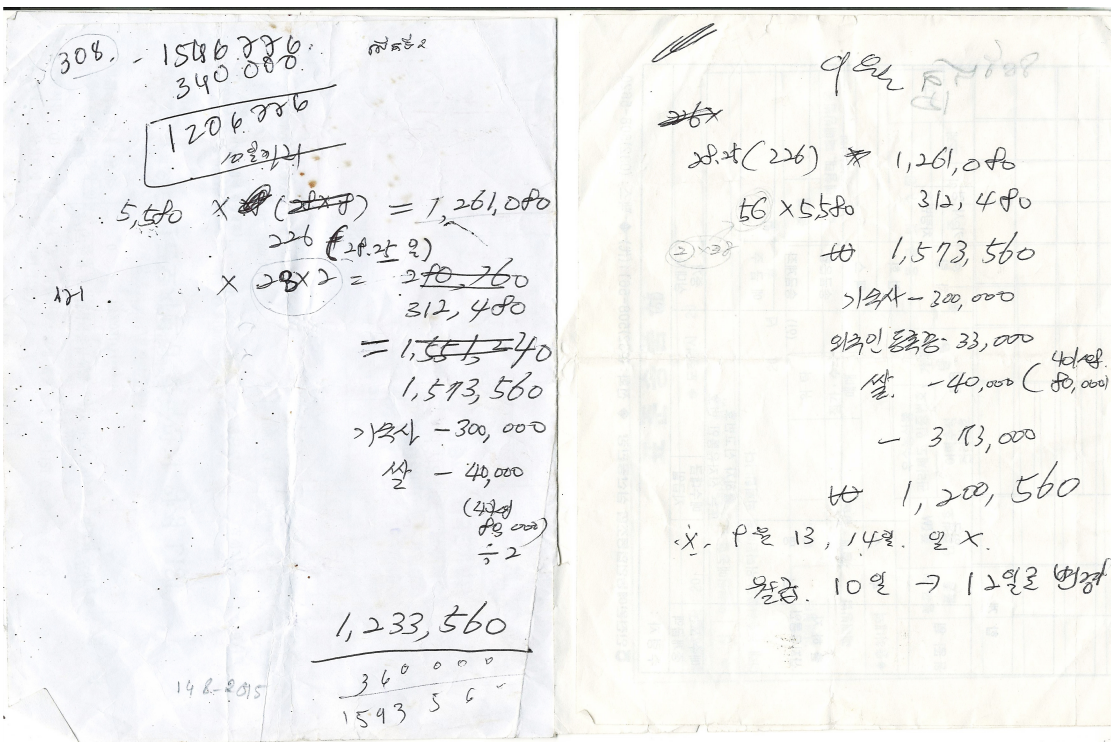 308. - 1546776.
340000
1206776
5,580 × (28×8) = 1,261,080
226 (28.25 일)
× 28×2 = 280,760
312,480
= 1,551,240
1,573,560
기숙사 - 300,000
쌀 - 40,000
(4가마
80,000)
÷ 2
1,233,560
360000
1593560
148-2015
9월
226×
28.25(226) * 1,261,080
56 × 5580 312,480
②×28
₩ 1,573,560
기숙사 - 300,000
외국인등록증- 33,000
쌀. - 40,000 (
80,000)
- 373,000
₩ 1,200,560
※. 9월 13, 14일. 일 X.
월급. 10일 → 12일로 변경